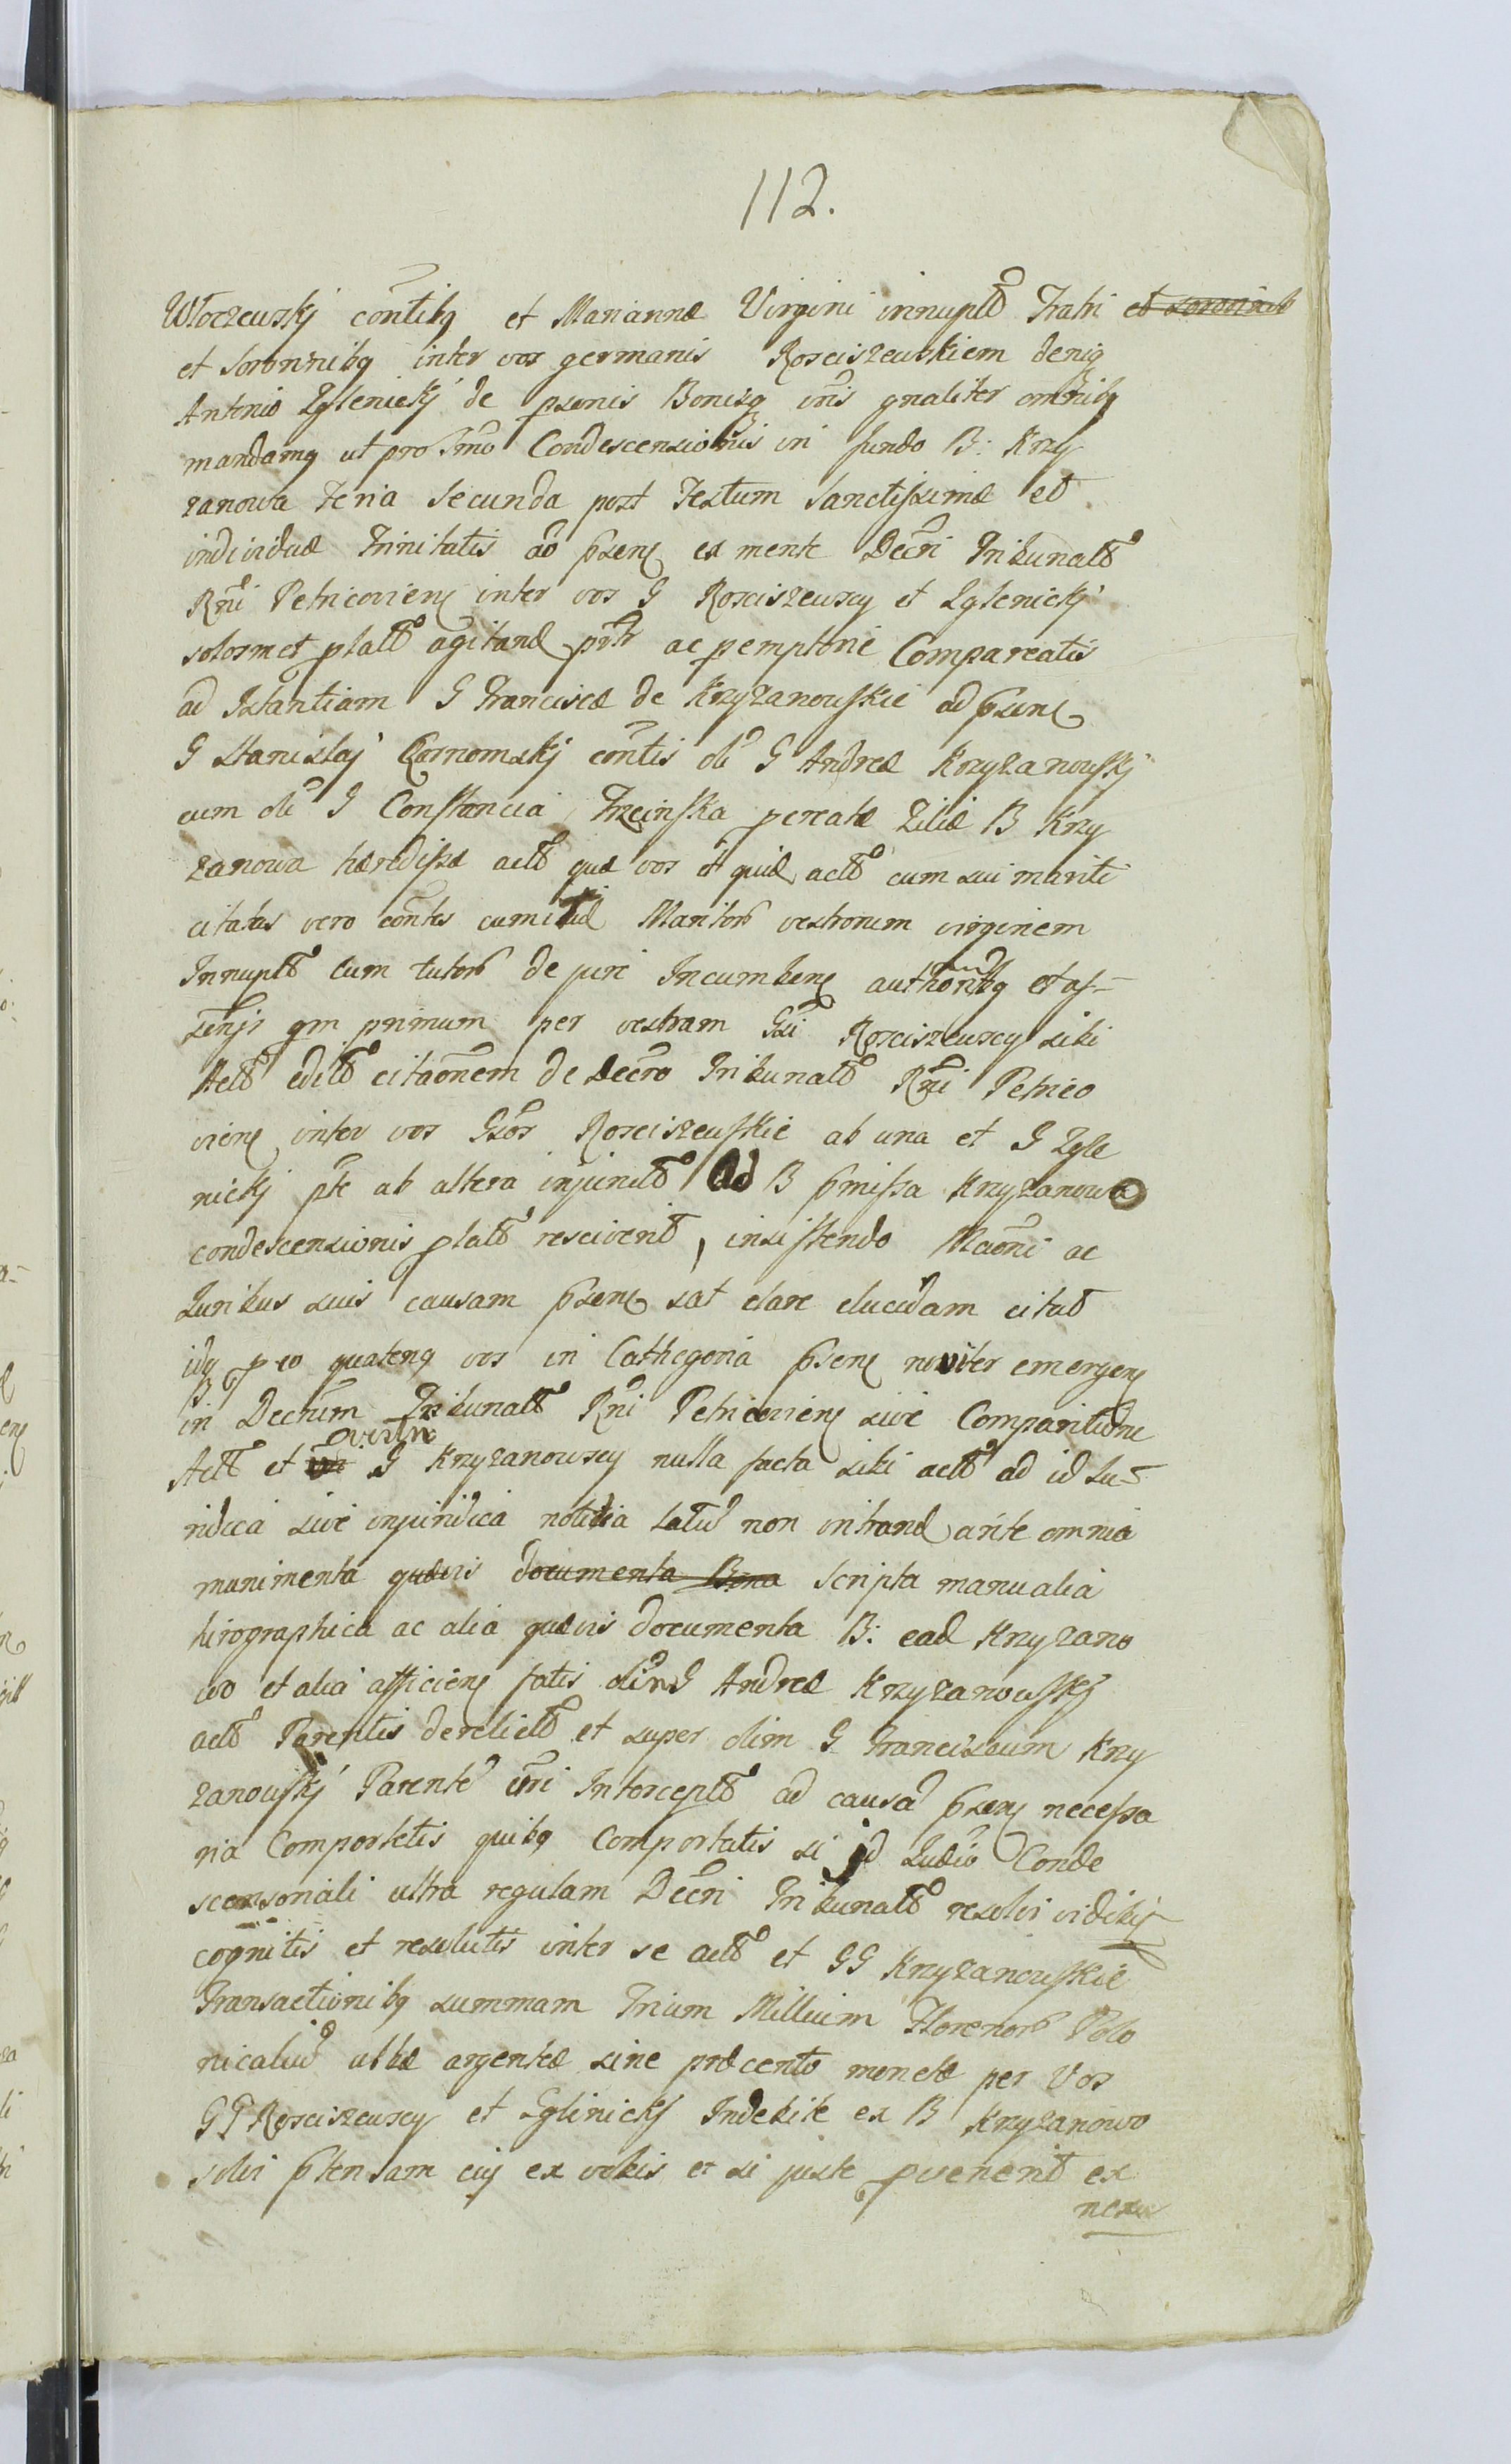 112.
Włoczewskj contibq et Mariannæ Virgini innuptæ Fratri et sororibus
et sororibq inter vos germanis Rosciszewskiem deniq
Antonio Zglenickj de psonis Bonisq vris gnaliter omnibq
mandamq ut pro Tmo Condescensionis in fundo B: Krzy
zanowa Feria Secunda post Festum Sanctissimæ et
individuæ Trinitatis ao psenq ex mente Decri Tribunalt
Rni Petricoviensq inter vos G Rosciszewscy et Zglenickj
solosmet platt agitand psr ac pemptorie Compareatis
ad Istantiam G Franciscæ de Krzyzanowskie ad psenq
G Stanislaj Czornomskj contis ol G Andreæ Krzyzanowskj
cum ol G Constancia Trzcinska pcreatæ Filiæ B Krzy
zanowa hærdissæ actt quæ vos et quid actt cum sui mariti
citatas vero contes cum itid Maritor vestrorum virginem
Innuptt cum tutor de jure Incumbenq authoritbq et as-
sensj qm primum per vestram Gsi Rosciszewscy sibi
Actt editt citaonem de Decro Tribunalt Rni Petrico
vienq inter vos Gsos Rosciszewskie ab una et G Zgle
nickj pte ab altera injunctt ad B pmissa Krzyzanowa
condescensionis platt resciverit, insistendo Maoni ac
Juribus suis causam psenq sat clare elucidam citat
idq p eo quatenq vos in Cathegoria psenq noviter emergenq
in Decrum Tribunalt Rni Petricovienq sive Comparitione
Actt et G Krzyzanowscy nulla facta sibi actt ad id Ju-
ridica sive injuridica notitia Tatus non intrand ante omnia
munimenta quævis documenta Bona scripta manualia
hirographica ac alia quævis documenta B: ead Krzyzano
wo et alia afficienq fatis olim G Andreæ Krzyzanowskj
actt Parentis derelictt et super olim G Franciscum Krzy
zanowskj Parente vri Interceptt ad causa psenq necessa
ria Comportetis quibq Comportatis si id Judio Conde
scensonali ultra regulam Decri Tribunalt resolvi vidibij
cognitis et resolutis inter se actt et GG Krzyzanowskie
Transactionibq summam Trium Millium Florenor Polo
nicaliu albæ argenteæ sine præcento monetæ per Vos
GG Rosciszewscy et Zglinickj Indebite ex B Krzyzanowo
solvi ptensam eiq ex vobis et si juste pvenerit ex
nexu